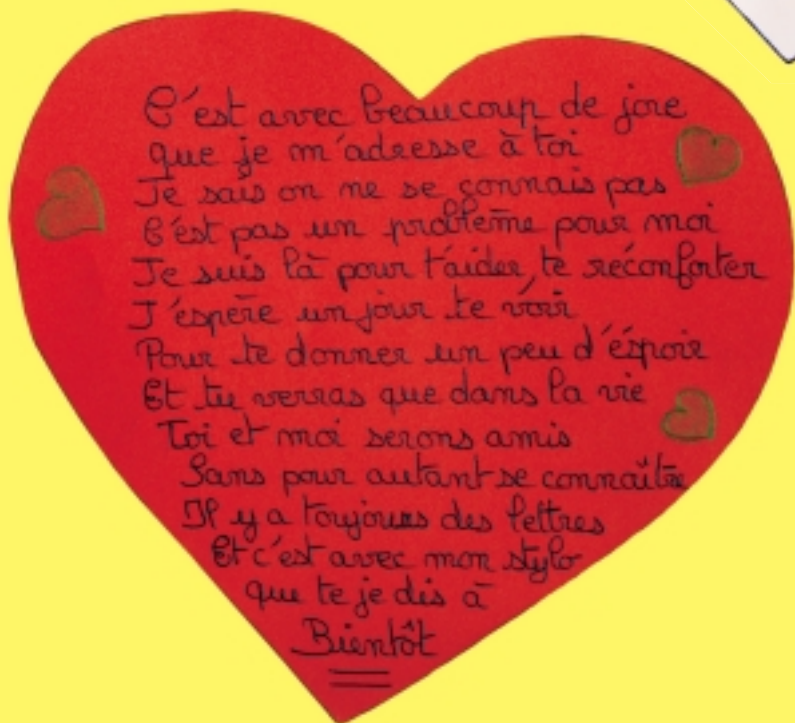 C'est avec beaucoup de joie
que je m'adresse à toi
Je sais on ne se connais pas
C'est pas un problème pour moi
Je suis là pour t'aider, te réconforter
J'espère un jour te voir
Pour te donner un peu d'éspoir
Et tu verras que dans la vie
Toi et moi serons amis
Sans pour autant se connaître
Il y a toujours des lettres
Et c'est avec mon stylo
que te je dis à
Bientôt